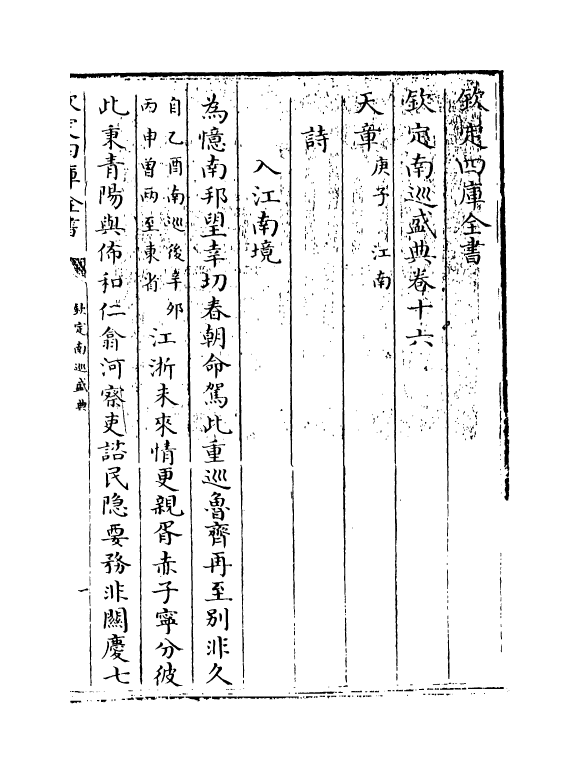 欽定四庫全書
欽定南巡盛典卷十六
天章庚子 江南
詩
入江南境
為憶南邦望幸切春朝命駕此重巡魯齊再至別非久
自乙酉南巡後辛卯
丙申曾兩至東省
江浙未來情更親胥赤子寜分彼
此秉青陽與佈和仁翕河察吏諮民隱要務非關慶七
欽定四庫全書
欽定南巡盛典
一